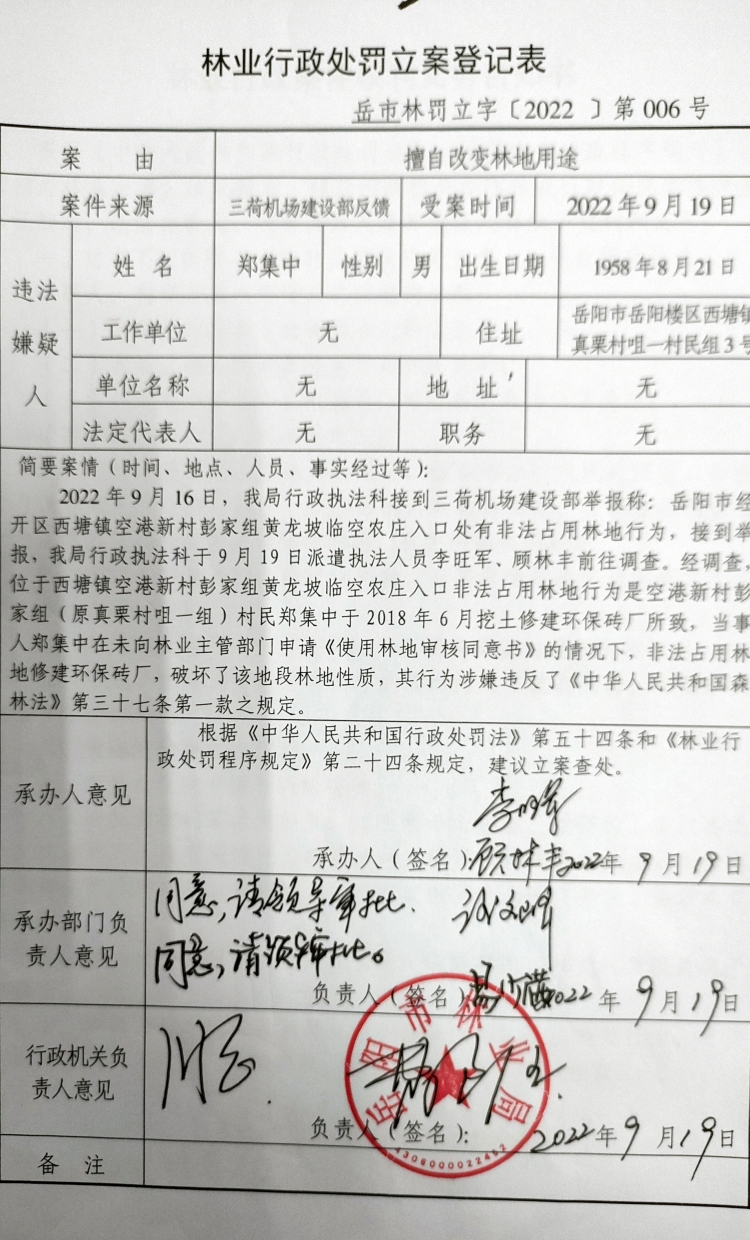 林业行政处罚立案登记表
岳市林罚立字〔2022 〕第 006 号
案 由 擅自改变林地用途
案件来源 三荷机场建设部反馈 受案时间 2022 年 9 月 19 日
违法嫌疑人
姓 名 郑集中 性别 男 出生日期 1958 年 8 月 21 日
工作单位 无 住址 岳阳市岳阳楼区西塘镇
真栗村咀一村民组 3 号
单位名称 无 地 址 无
法定代表人 无 职务 无
简要案情（时间、地点、人员、事实经过等）：
2022 年 9 月 16 日，我局行政执法科接到三荷机场建设部举报称：岳阳市经
开区西塘镇空港新村彭家组黄龙坡临空农庄入口处有非法占用林地行为，接到举
报，我局行政执法科于 9 月 19 日派遣执法人员李旺军、顾林丰前往调查。经调查，
位于西塘镇空港新村彭家组黄龙坡临空农庄入口非法占用林地行为是空港新村彭
家组（原真栗村咀一组）村民郑集中于 2018 年 6 月挖土修建环保砖厂所致，当事
人郑集中在未向林业主管部门申请《使用林地审核同意书》的情况下，非法占用林
地修建环保砖厂，破坏了该地段林地性质，其行为涉嫌违反了《中华人民共和国森
林法》第三十七条第一款之规定。
承办人意见
根据《中华人民共和国行政处罚法》第五十四条和《林业行
政处罚程序规定》第二十四条规定，建议立案查处。
李旺军
承办人（签名）：顾林丰 2022 年 9 月 19 日
承办部门负
责人意见
同意，请领导审批．
同意，请领导审批。
负责人（签名） 2022 年 9 月 19 日
行政机关负
责人意见
同意．
岳阳市林业局
4306000022462
负责人（签名）： 2022 年 9 月 19 日
备 注